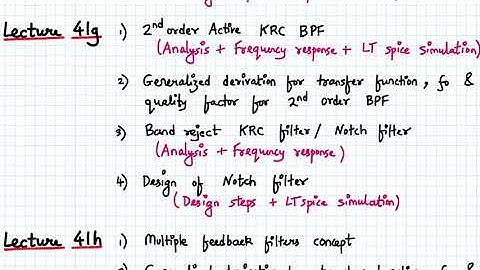 Lecture 41g 1) 2nd order Active KRC BPF
(Analysis + Frequency response + LT spice simulation)
2) Generalized derivation for transfer function, fo &
quality factor for 2nd order BPF
3) Band reject KRC filter / Notch filter
(Analysis + Frequency response)
4) Design of Notch filter
(Design steps + LTspice simulation)
Lecture 41h 1) Multiple feedback filters concept